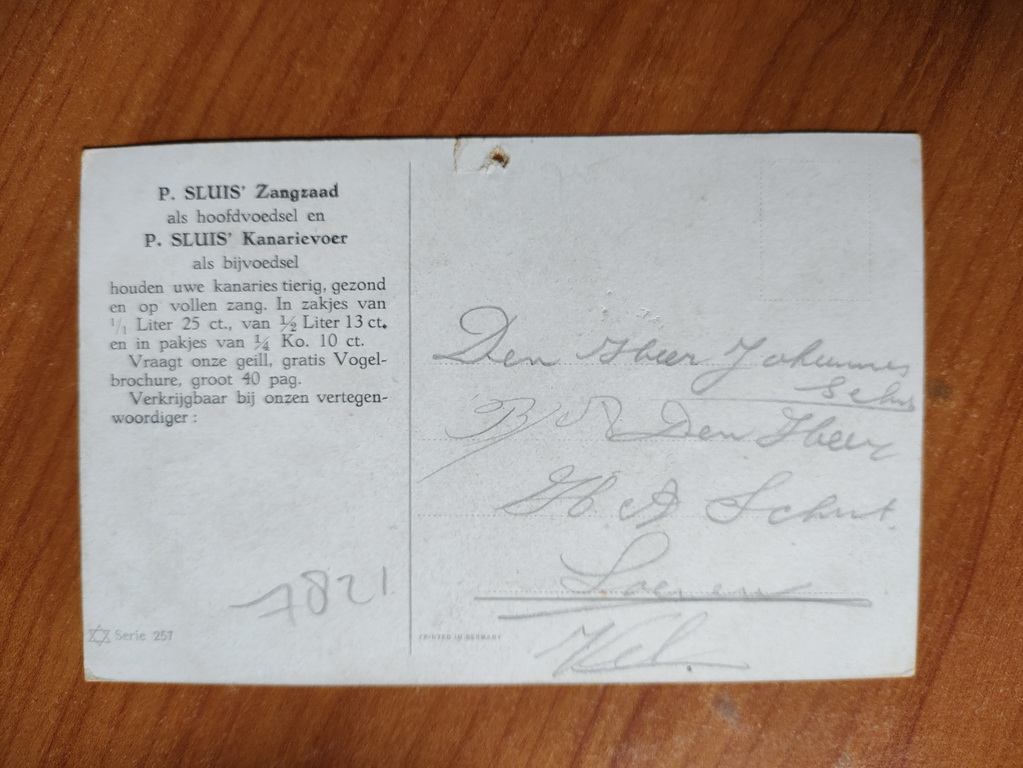 P. SLUIS' Zangzaad
als hoofdvoedsel en
P. SLUIS' Kanarievoer
als bijvoedsel
houden uwe kanaries tierig, gezond
en op vollen zang. In zakjes van
1/1 Liter 25 ct., van 1/2 Liter 13 ct.
en in pakjes van 1/4 Ko. 10 ct.
Vraagt onze geill, gratis Vogel-
brochure, groot 40 pag.
Verkrijgbaar bij onzen vertegen-
woordiger :
7821
Serie 257
PRINTED IN GERMANY
Den Heer Johannes
Schut
Den Heer
H A Schut.
Loenen
Vel.